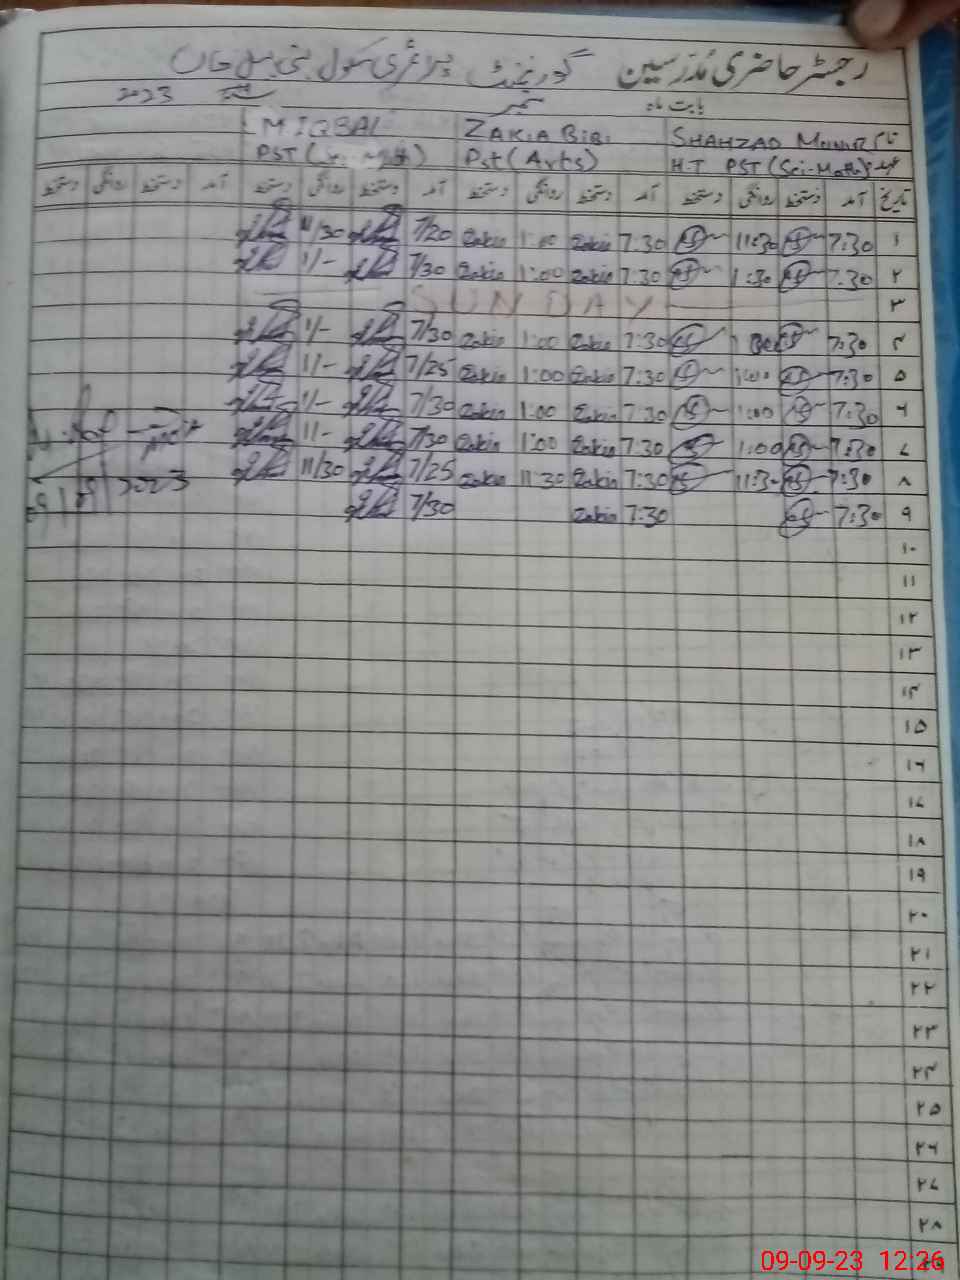 رجسٹر حاضری مدرسین گورنمنٹ پرائمری سکول بنی
بابت ماہ ستمبر 2023
نام SHAHZAD MUNIR ZAKIA BIBI M IQBAL
عہدہ H.T PST (Sci-Math) Pst (Arts) PST (Sci-Math)
تاریخ آمد دستخط روانگی دستخط آمد دستخط روانگی دستخط آمد دستخط روانگی دستخط آمد دستخط روانگی دستخط
۱ 7:30 11:30 7:30 Zakia 1:00 Zakia 7/20 11/30
۲ 7:30 1:30 7:30 Zakia 1:00 Zakia 7/30 1/-
۳ SUNDAY
۴ 7:30 7:30 Zakia 1:00 Zakia 7/30 1/-
۵ 7:30 1:00 7:30 Zakia 1:00 Zakia 7/25 1/-
۶ 7:30 1:00 7:30 Zakia 1:00 Zakia 7/30 1/-
۷ 7:30 1:00 7:30 Zakia 1:00 Zakia 7/30 1/-
۸ 7:30 11:30 7:30 Zakia 11:30 Zakia 7/25 11/30
۹ 7:30 7:30 Zakia 7/30
2023
۱۰
۱۱
۱۲
۱۳
۱۴
۱۵
۱۶
۱۷
۱۸
۱۹
۲۰
۲۱
۲۲
۲۳
۲۴
۲۵
۲۶
۲۷
۲۸
09-09-23 12:26